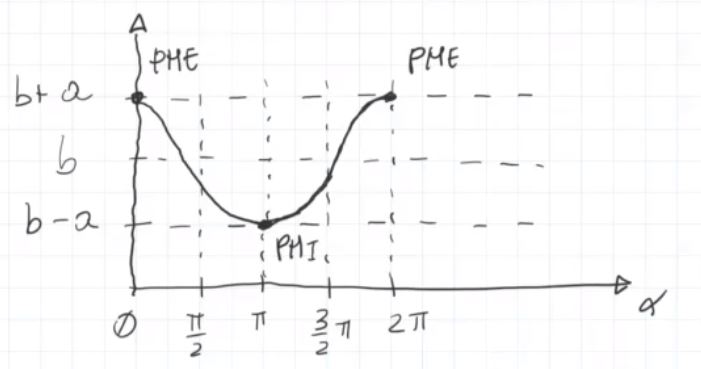 PME PME
b+a
b
b-a
PMI
0 π/2 π 3/2 π 2π α